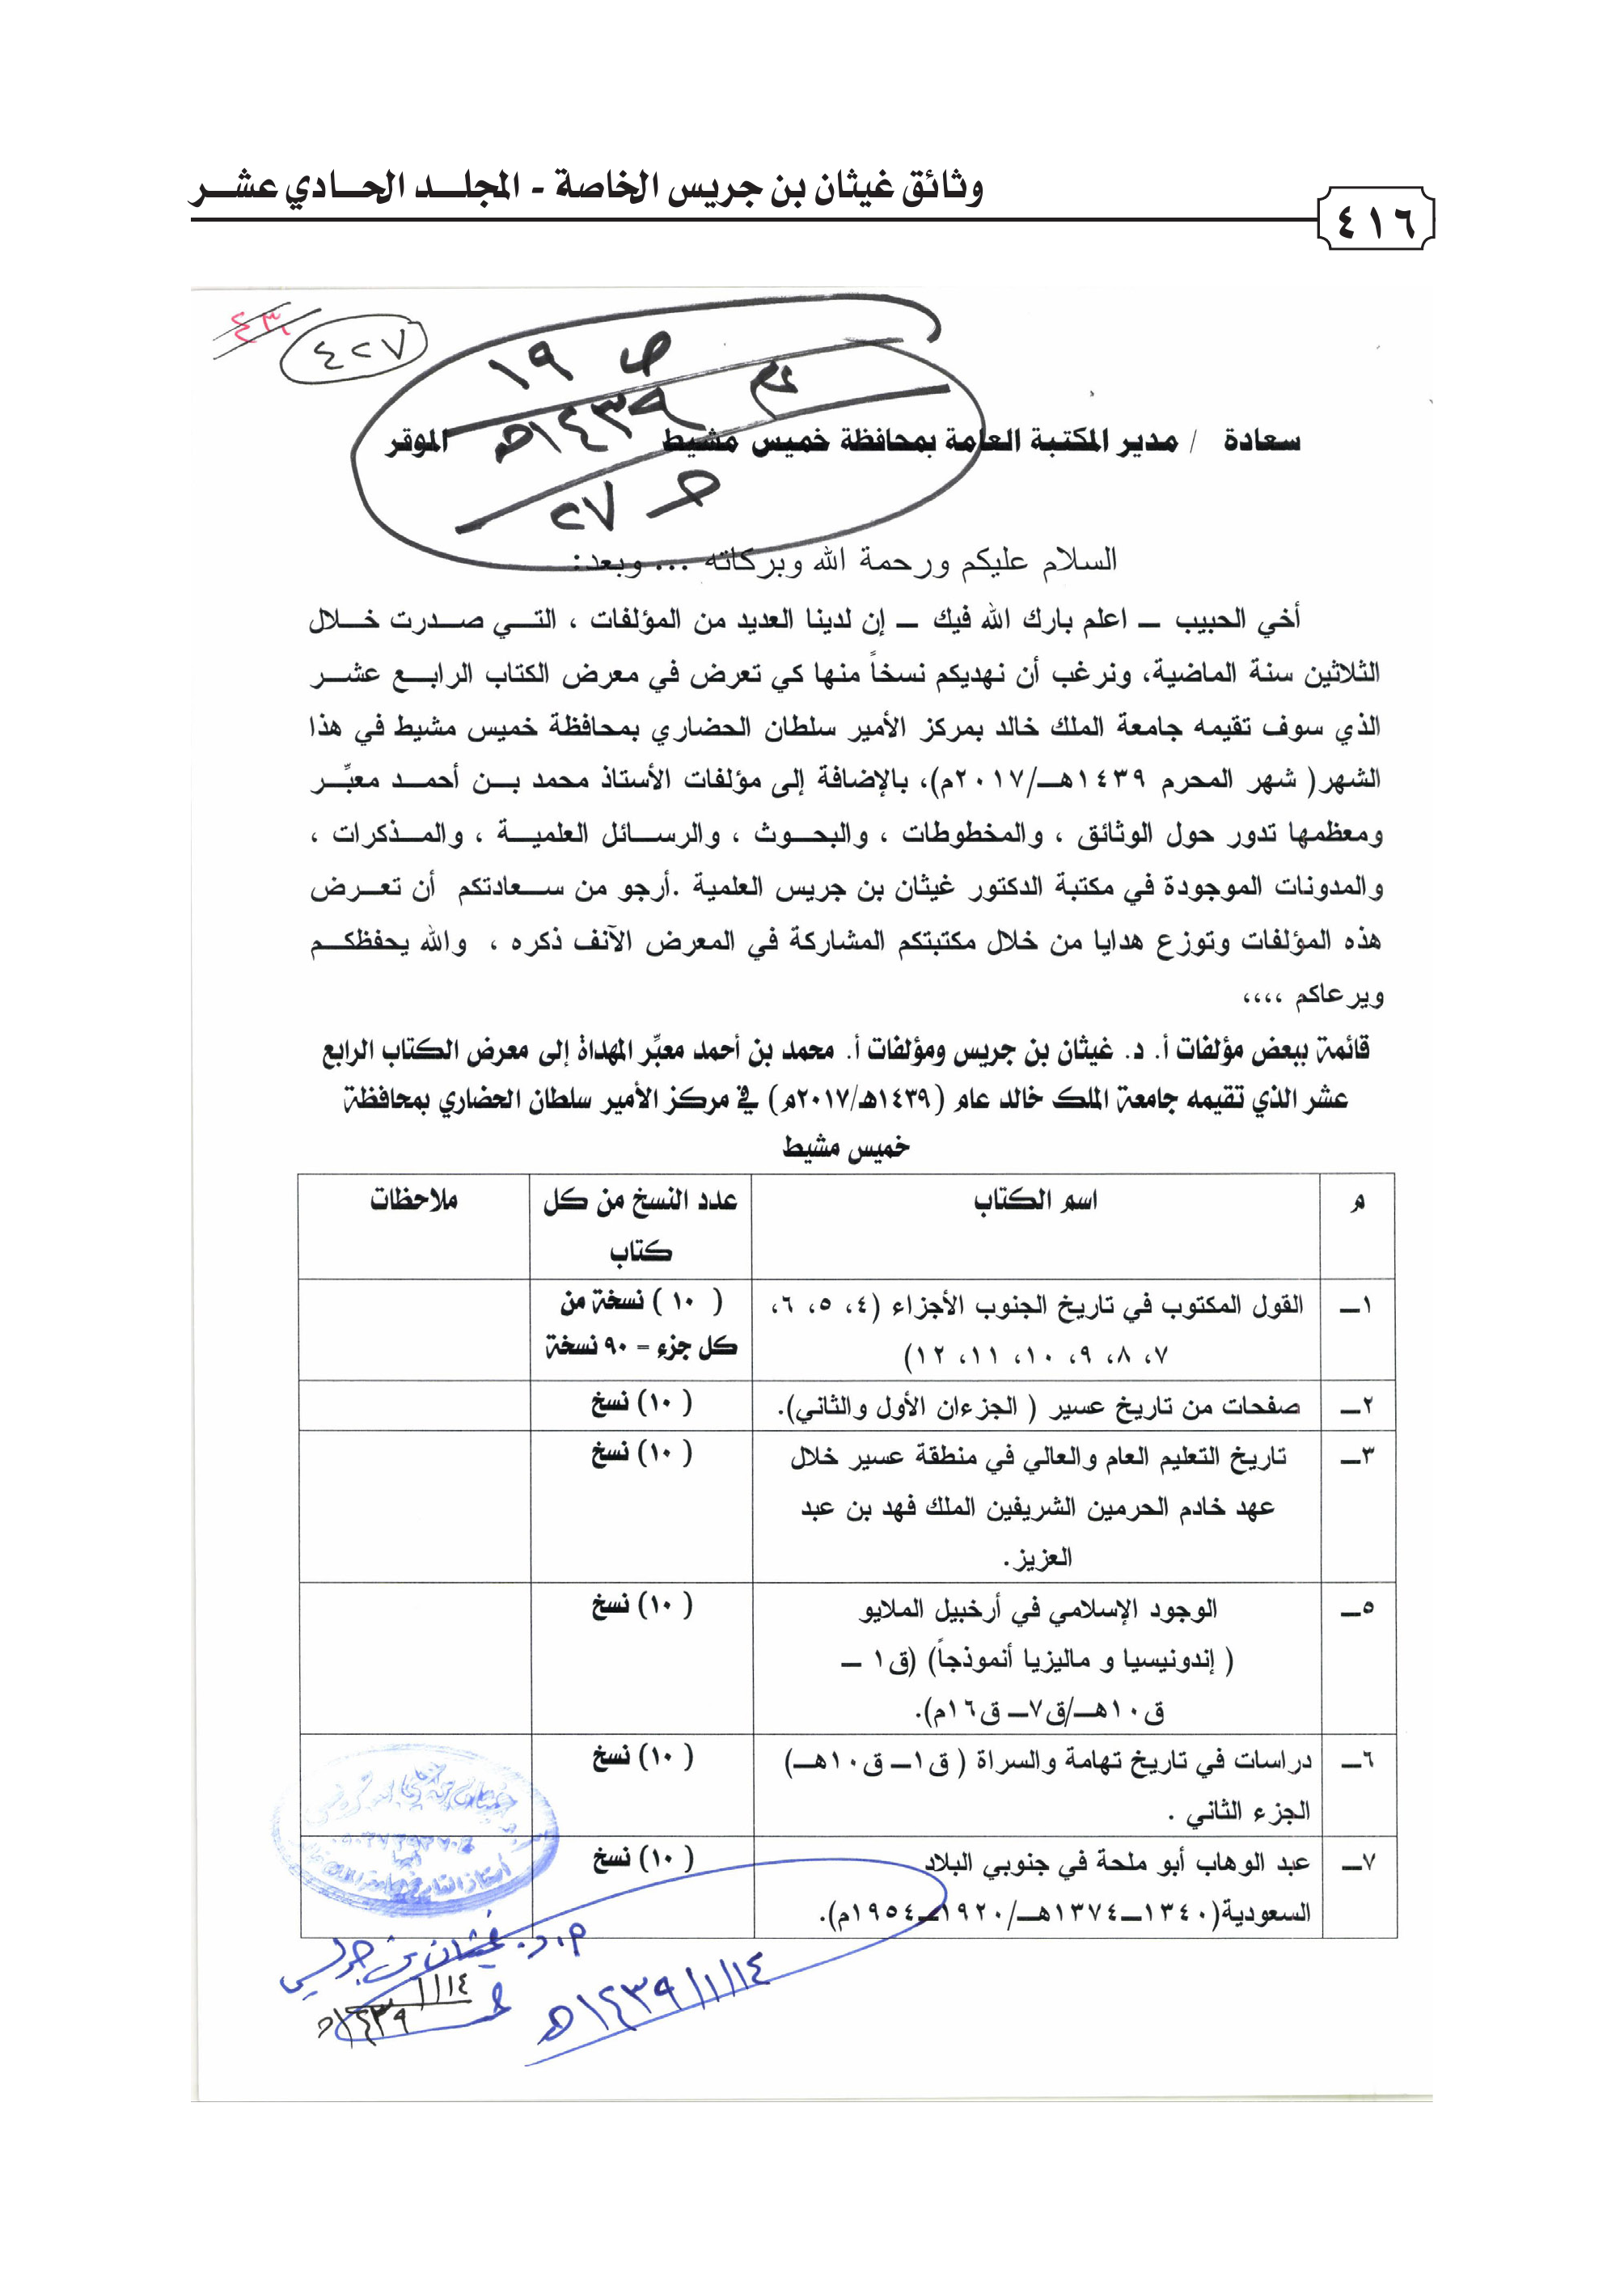 وثائق غيثان بن جريس الخاصة - المجلـــد الحـــادي عشـــر
٤١٦
٤٢٧
ص ١٩
١٤٣٩هـ
٢٧
سعادة / مدير المكتبة العامة بمحافظة خميس مشيط الموقر
السلام عليكم ورحمة الله وبركاته ... وبعد:
أخي الحبيب ــ اعلم بارك الله فيك ــ إن لدينا العديد من المؤلفات ، التـــي صـــدرت خـــلال
الثلاثين سنة الماضية، ونرغب أن نهديكم نسخاً منها كي تعرض في معرض الكتاب الرابـــع عشـــر
الذي سوف تقيمه جامعة الملك خالد بمركز الأمير سلطان الحضاري بمحافظة خميس مشيط في هذا
الشهر( شهر المحرم ١٤٣٩هــ/٢٠١٧م)، بالإضافة إلى مؤلفات الأستاذ محمد بـــن أحمـــد معبِّـــر
ومعظمها تدور حول الوثائق ، والمخطوطات ، والبحـــوث ، والرســـائل العلميـــة ، والمـــذكرات ،
والمدونات الموجودة في مكتبة الدكتور غيثان بن جريس العلمية .أرجو من ســـعادتكم أن تعـــرض
هذه المؤلفات وتوزع هدايا من خلال مكتبتكم المشاركة في المعرض الآنف ذكره ، والله يحفظكـــم
ويرعاكم ،،،،
قائمة ببعض مؤلفات أ. د. غيثان بن جريس ومؤلفات أ. محمد بن أحمد معبِّر المهداة إلى معرض الكتاب الرابع
عشر الذي تقيمه جامعة الملك خالد عام (١٤٣٩هـ/٢٠١٧م) في مركز الأمير سلطان الحضاري بمحافظة
خميس مشيط
م اسم الكتاب عدد النسخ من كل ملاحظات
كتاب
١ــ القول المكتوب في تاريخ الجنوب الأجزاء (٤، ٥، ٦، ( ١٠ ) نسخة من
٧، ٨، ٩، ١٠، ١١، ١٢) كل جزء = ٩٠ نسخة
٢ــ صفحات من تاريخ عسير ( الجزءان الأول والثاني). ( ١٠) نسخ
٣ــ تاريخ التعليم العام والعالي في منطقة عسير خلال ( ١٠) نسخ
عهد خادم الحرمين الشريفين الملك فهد بن عبد
العزيز.
٥ــ الوجود الإسلامي في أرخبيل الملايو ( ١٠) نسخ
( إندونيسيا و ماليزيا أنموذجاً) (ق١ ــ
ق١٠هــ/ق٧ــ ق١٦م).
٦ــ دراسات في تاريخ تهامة والسراة ( ق١ــ ق١٠هــ) ( ١٠) نسخ
الجزء الثاني .
٧ــ عبد الوهاب أبو ملحة في جنوبي البلاد ( ١٠) نسخ
السعودية(١٣٤٠ــ١٣٧٤هــ/١٩٢٠ــ١٩٥٤م).
غيثان بن جريس
١٤٣٩/١/١٤هـ
١/١٤
١٤٣٩هـ